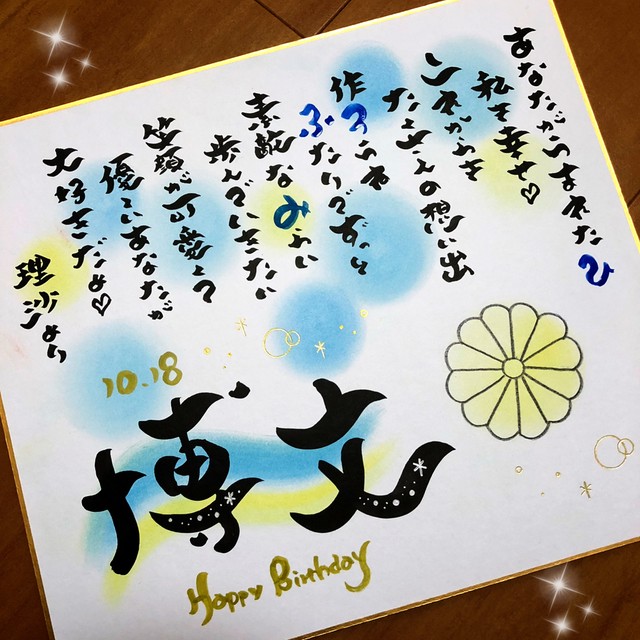 あなたがうまれたひ
私も幸せ♡
これからも
たくさんの想い出
作ろうね
ふたりでずっと
素敵なみらい
歩んでいきたい
笑顔が可愛くて
優しいあなたが
大好きだよ♡
理沙より
10.18
博文
Happy Birthday